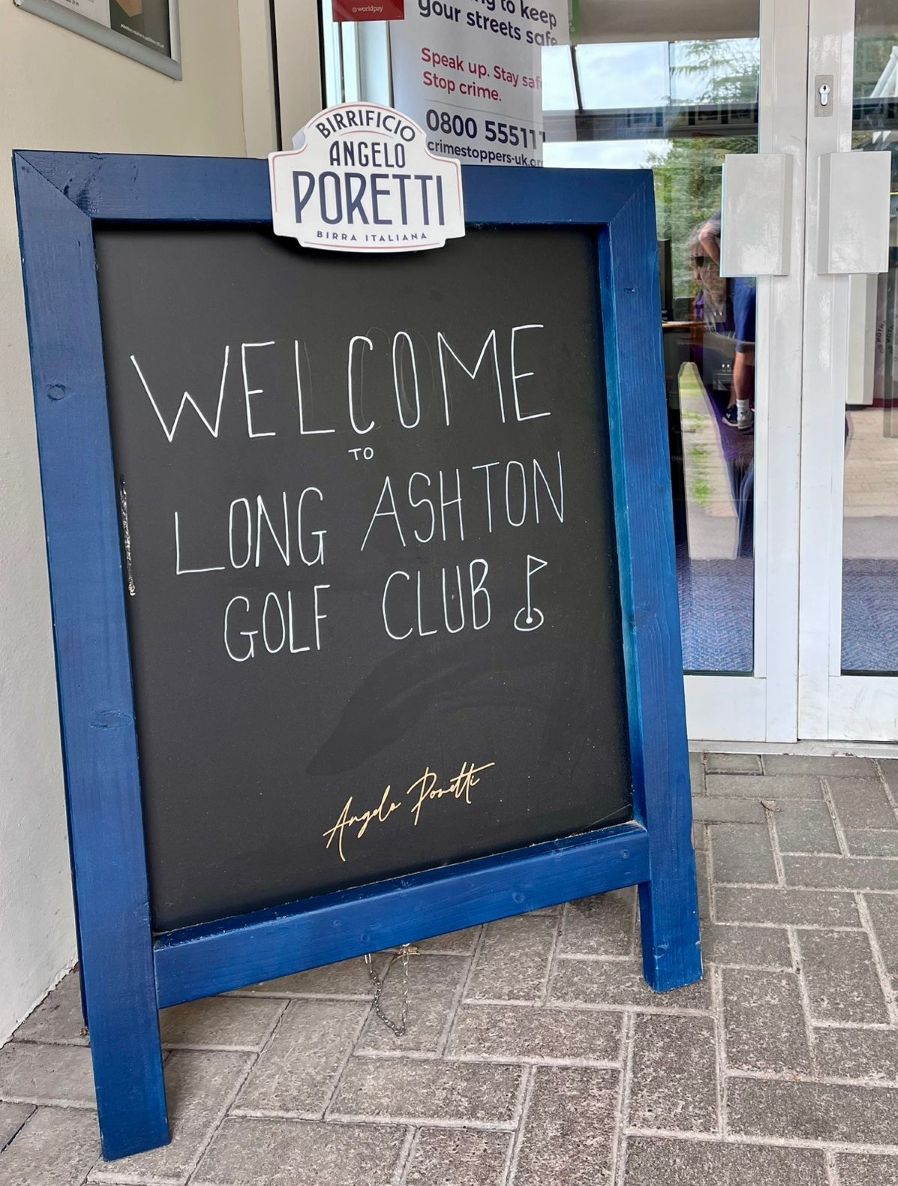 @worldpay
ng to keep
your streets safe
Speak up. Stay saf
Stop crime.
0800 55511
crimestoppers-uk.org
BIRRIFICIO
ANGELO
PORETTI
BIRRA ITALIANA
WELCOME
TO
LONG ASHTON
GOLF CLUB
Angelo Poretti